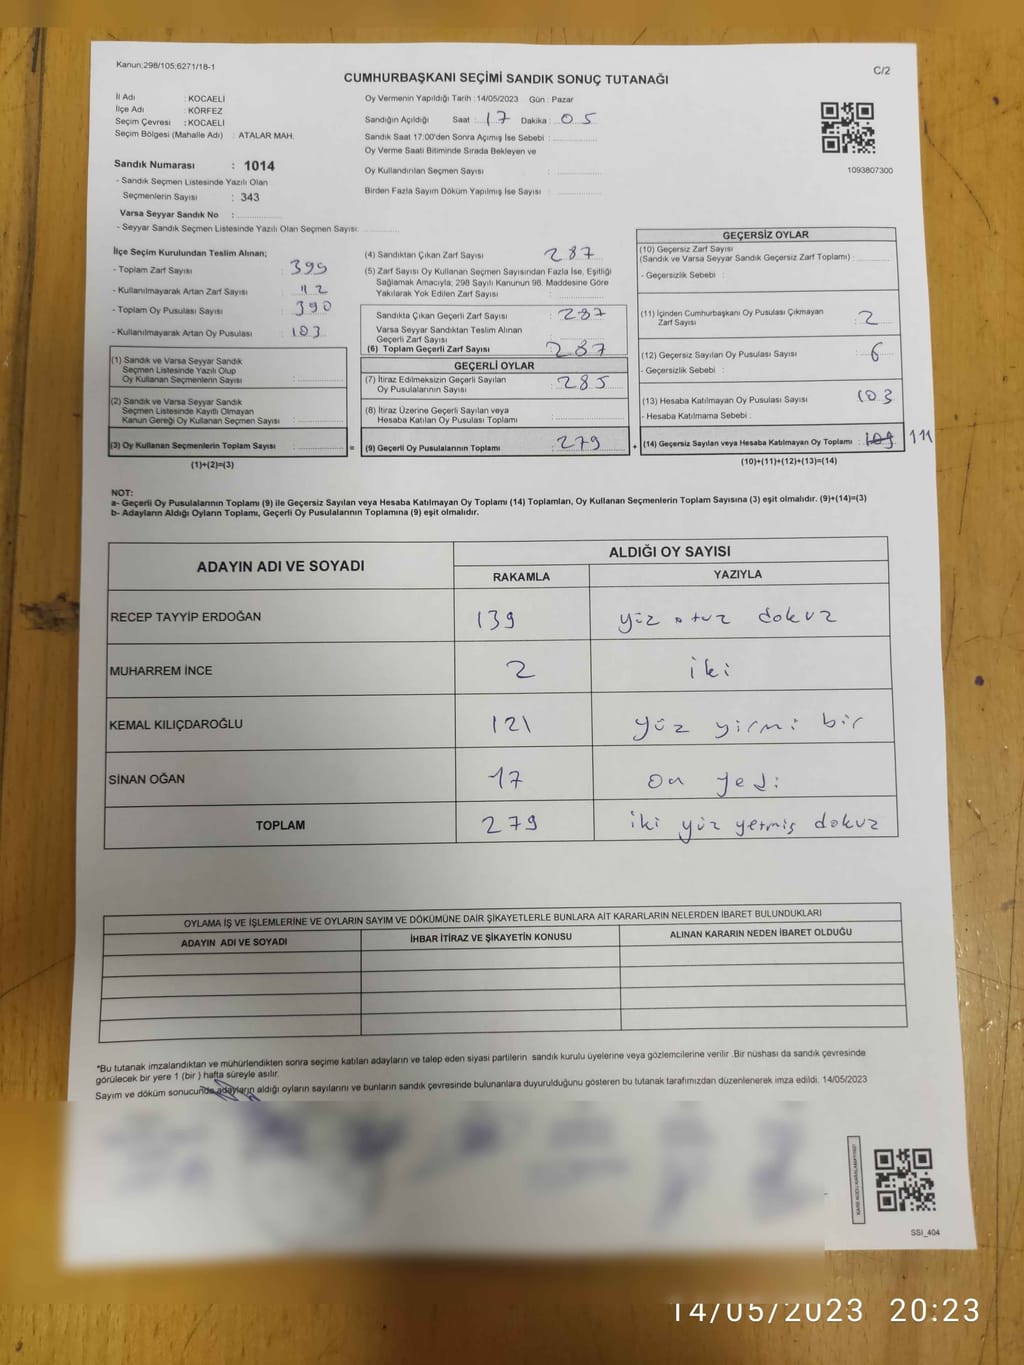 Kanun:298/105;6271/18-1
C/2
CUMHURBAŞKANI SEÇİMİ SANDIK SONUÇ TUTANAĞI
İl Adı : KOCAELİ
İlçe Adı : KÖRFEZ
Seçim Çevresi : KOCAELİ
Seçim Bölgesi (Mahalle Adı) : ATALAR MAH.
Sandık Numarası : 1014
- Sandık Seçmen Listesinde Yazılı Olan
Seçmenlerin Sayısı : 343
Varsa Seyyar Sandık No :
- Seyyar Sandık Seçmen Listesinde Yazılı Olan Seçmen Sayısı:
Oy Vermenin Yapıldığı Tarih :14/05/2023 Gün : Pazar
Sandığın Açıldığı Saat : 17 Dakika : 05
Sandık Saat 17:00'den Sonra Açımış İse Sebebi :
Oy Verme Saati Bitiminde Sırada Bekleyen ve
Oy Kullandırılan Seçmen Sayısı :
Birden Fazla Sayım Döküm Yapılmış İse Sayısı :
1093807300
İlçe Seçim Kurulundan Teslim Alınan;
- Toplam Zarf Sayısı : 399
- Kullanılmayarak Artan Zarf Sayısı : 112
- Toplam Oy Pusulası Sayısı : 390
- Kullanılmayarak Artan Oy Pusulası : 103
(1) Sandık ve Varsa Seyyar Sandık
Seçmen Listesinde Yazılı Olup
Oy Kullanan Seçmenlerin Sayısı :
(2) Sandık ve Varsa Seyyar Sandık
Seçmen Listesinde Kayıtlı Olmayan
Kanun Gereği Oy Kullanan Seçmen Sayısı :
(3) Oy Kullanan Seçmenlerin Toplam Sayısı :
(1)+(2)=(3)
(4) Sandıktan Çıkan Zarf Sayısı : 287
(5) Zarf Sayısı Oy Kullanan Seçmen Sayısından Fazla İse, Eşitliği
Sağlamak Amacıyla; 298 Sayılı Kanunun 98. Maddesine Göre
Yakılarak Yok Edilen Zarf Sayısı :
Sandıkta Çıkan Geçerli Zarf Sayısı : 287
Varsa Seyyar Sandıktan Teslim Alınan
Geçerli Zarf Sayısı :
(6) Toplam Geçerli Zarf Sayısı : 287
GEÇERLİ OYLAR
(7) İtiraz Edilmeksizin Geçerli Sayılan
Oy Pusulalarının Sayısı : 285
(8) İtiraz Üzerine Geçerli Sayılan veya
Hesaba Katılan Oy Pusulası Toplamı :
= (9) Geçerli Oy Pusulalarının Toplamı : 279
GEÇERSİZ OYLAR
(10) Geçersiz Zarf Sayısı
(Sandık ve Varsa Seyyar Sandık Geçersiz Zarf Toplamı) :
- Geçersizlik Sebebi :
(11) İçinden Cumhurbaşkanı Oy Pusulası Çıkmayan
Zarf Sayısı : 2
(12) Geçersiz Sayılan Oy Pusulası Sayısı : 6
- Geçersizlik Sebebi :
(13) Hesaba Katılmayan Oy Pusulası Sayısı : 103
- Hesaba Katılmama Sebebi :
+ (14) Geçersiz Sayılan veya Hesaba Katılmayan Oy Toplamı : 109 111
(10)+(11)+(12)+(13)=(14)
NOT:
a- Geçerli Oy Pusulalarının Toplamı (9) ile Geçersiz Sayılan veya Hesaba Katılmayan Oy Toplamı (14) Toplamları, Oy Kullanan Seçmenlerin Toplam Sayısına (3) eşit olmalıdır. (9)+(14)=(3)
b- Adayların Aldığı Oyların Toplamı, Geçerli Oy Pusulalarının Toplamına (9) eşit olmalıdır.
ADAYIN ADI VE SOYADI
ALDIĞI OY SAYISI
RAKAMLA YAZIYLA
RECEP TAYYİP ERDOĞAN 139 yüz otuz dokuz
MUHARREM İNCE 2 iki
KEMAL KILIÇDAROĞLU 121 yüz yirmi bir
SİNAN OĞAN 17 on yedi
TOPLAM 279 iki yüz yetmiş dokuz
OYLAMA İŞ VE İŞLEMLERİNE VE OYLARIN SAYIM VE DÖKÜMÜNE DAİR ŞİKAYETLERLE BUNLARA AİT KARARLARIN NELERDEN İBARET BULUNDUKLARI
ADAYIN ADI VE SOYADI İHBAR İTİRAZ VE ŞİKAYETİN KONUSU ALINAN KARARIN NEDEN İBARET OLDUĞU
*Bu tutanak imzalandıktan ve mühürlendikten sonra seçime katılan adayların ve talep eden siyasi partilerin sandık kurulu üyelerine veya gözlemcilerine verilir .Bir nüshası da sandık çevresinde
görülecek bir yere 1 (bir ) hafta süreyle asılır.
Sayım ve döküm sonucunda adayların aldığı oyların sayılarını ve bunların sandık çevresinde bulunanlara duyurulduğunu gösteren bu tutanak tarafımızdan düzenlenerek imza edildi. 14/05/2023
SSI_404
14/05/2023 20:23